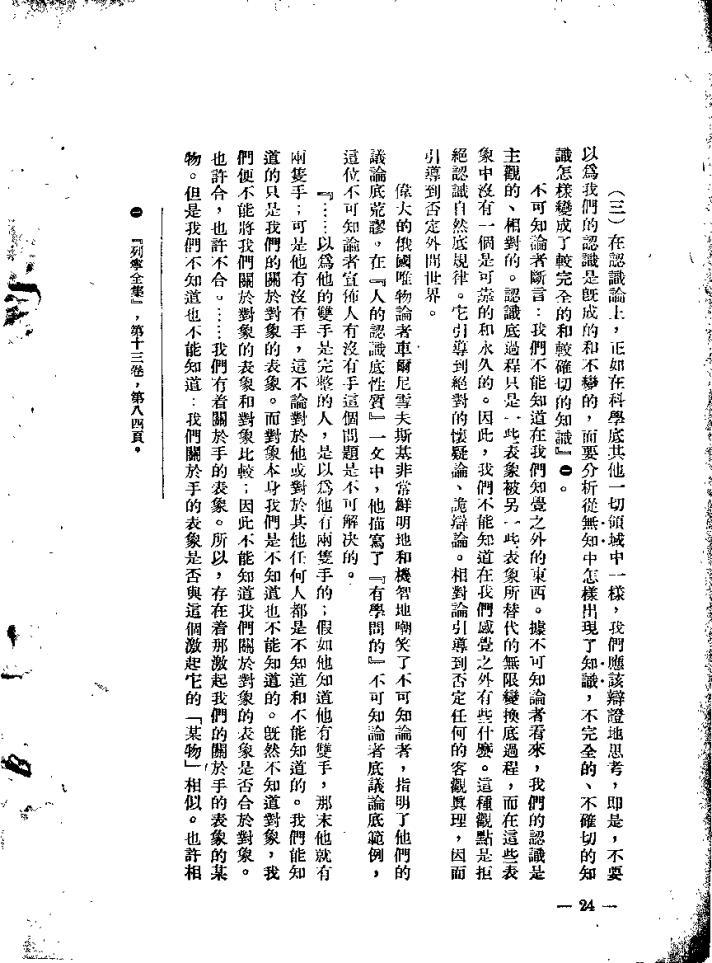 (三)在認識論上，正如在科學底其他一切領域中一樣，我們應該辯證地思考，即是，不要
以爲我們的認識是旣成的和不變的，而要分析從無知中怎樣出現了知識，不完全的、不確切的知
識怎樣變成了較完全的和較確切的知識』❶。
不可知論者斷言：我們不能知道在我們知覺之外的東西。據不可知論者看來，我們的認識是
主觀的、相對的。認識底過程只是一些表象被另一些表象所替代的無限變換底過程，而在這些表
象中沒有一個是可靠的和永久的。因此，我們不能知道在我們感覺之外有些什麼。這種觀點是拒
絕認識自然底規律。它引導到絕對的懷疑論、詭辯論。相對論引導到否定任何的客觀眞理，因而
引導到否定外間世界。
偉大的俄國唯物論者車爾尼雪夫斯基非常鮮明地和機智地嘲笑了不可知論者，指明了他們的
議論底荒謬。在『人的認識底性質』一文中，他描寫了『有學問的』不可知論者底議論底範例，
這位不可知論者宣佈人有沒有手這個問題是不可解決的。
『……以爲他的雙手是完整的人，是以爲他有兩隻手的；假如他知道他有雙手，那末他就有
兩隻手；可是他有沒有手，這不論對於他或對於其他任何人都是不知道和不能知道的。我們能知
道的只是我們的關於對象的表象。而對象本身我們是不知道也不能知道的。旣然不知道對象，我
們便不能將我們關於對象的表象和對象比較；因此不能知道我們關於對象的表象是否合於對象。
也許合，也許不合。……我們有着關於手的表象。所以，存在着那激起我們的關於手的表象的某
物。但是我們不知道也不能知道：我們關於手的表象是否與這個激起它的「某物」相似。也許相
❶ 『列寧全集』，第十三卷，第八四頁。
— 24 —